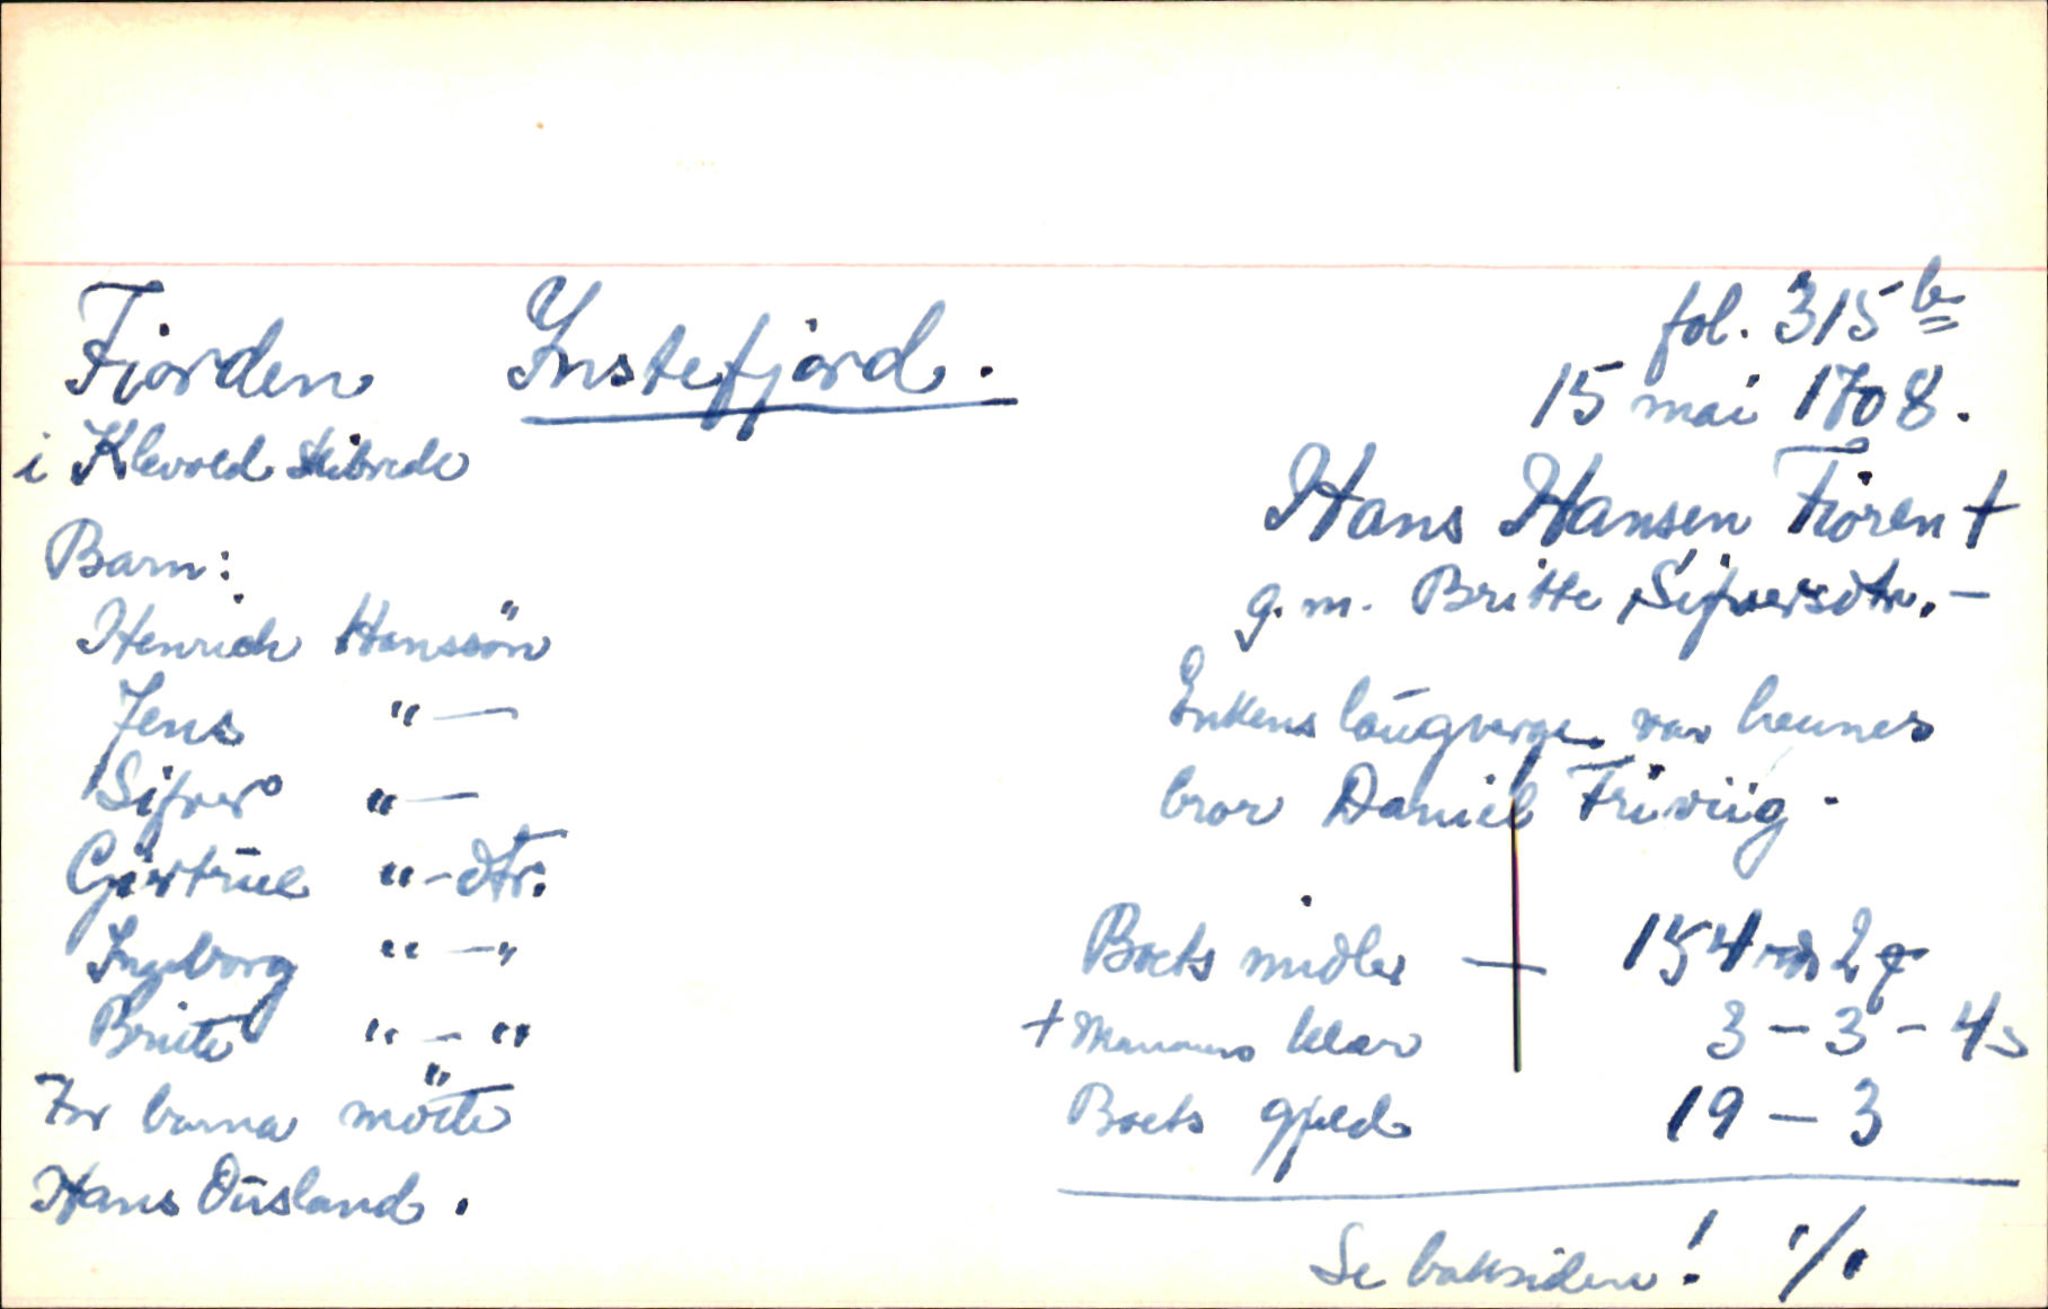 Fiorden Ynstefjord.
i Klevold Skibrede
Barn:
Henrich Hanssön
Jens "—
Sifver "—
Giertrue "-dtr.
Ingeborg " — "
Brite " — "
For barna mötte
Hans Ousland.
fol. 315 b
15 mai 1708.
Hans Hansen Fioren †
g. m. Britte Sifversdtr. —
Enkens laugverge var hennes
bror Daniel Friviig.
Boets midler — 154 rd 2 q
+ Manns klær 3 — 3 — 4 s
Boets gjeld 19 — 3
Se baksiden! ./.